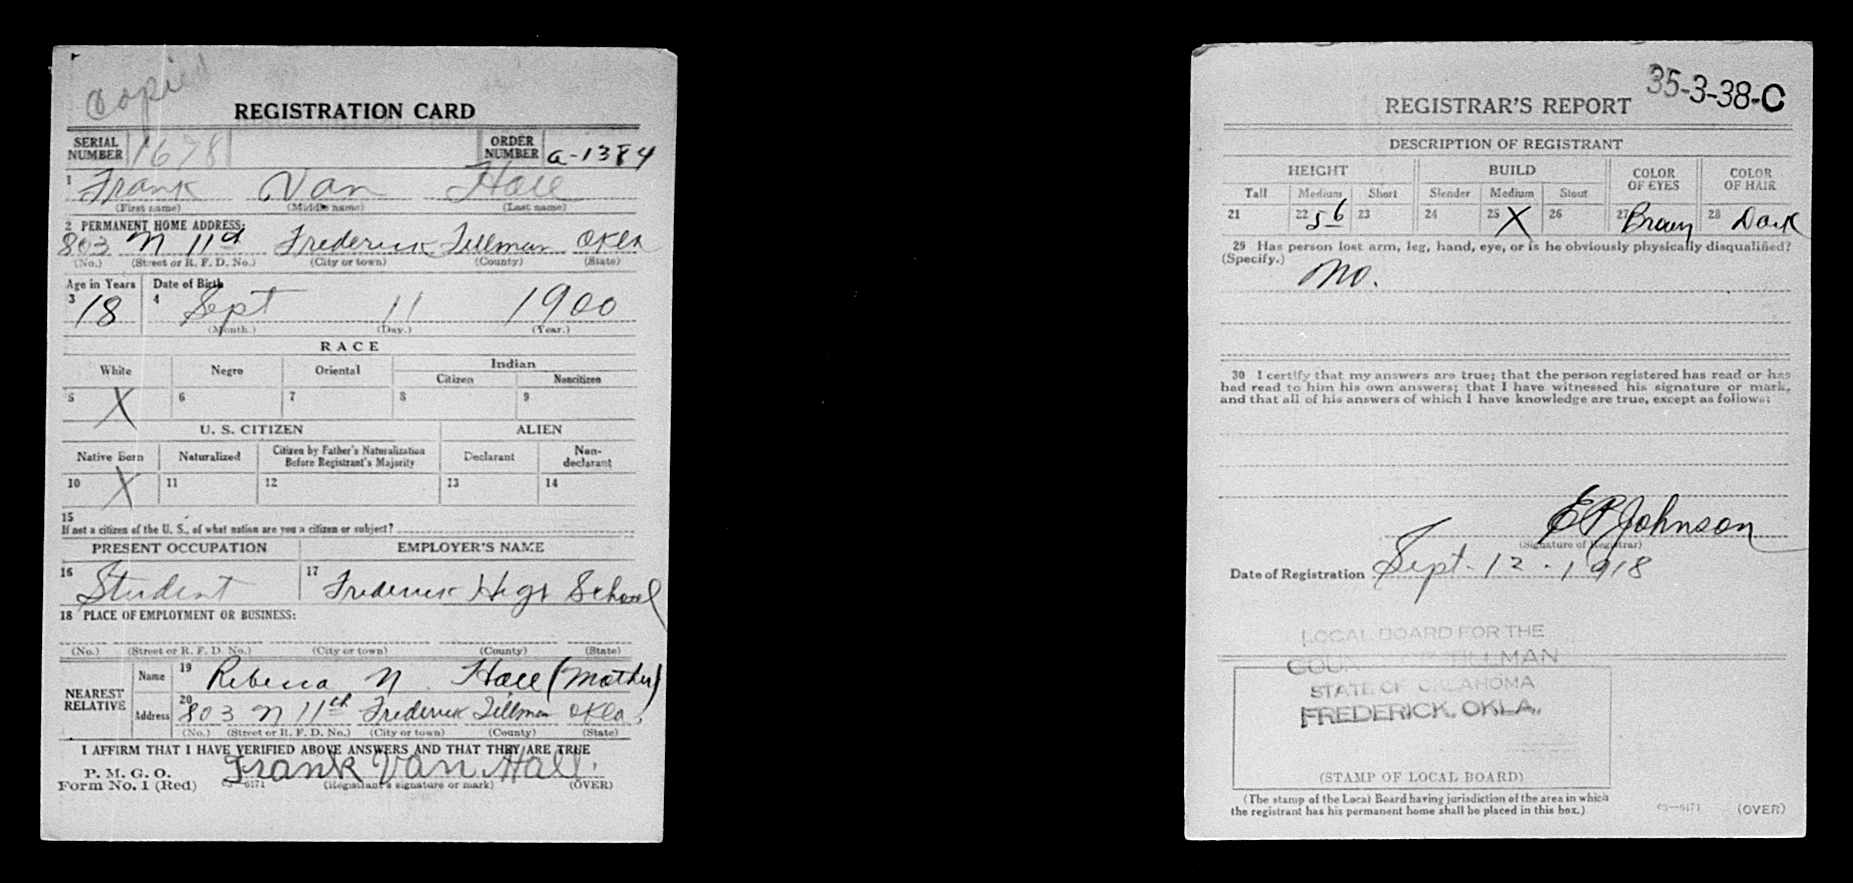 Copied
REGISTRATION CARD
SERIAL NUMBER 1678 ORDER NUMBER a-1384
1 Frank Van Hall
(First name) (Middle name) (Last name)
2 PERMANENT HOME ADDRESS:
803 N 11th Frederick Tillman Okla
(No.) (Street or R. F. D. No.) (City or town) (County) (State)
Age in Years Date of Birth
3 18 4 Sept 11 1900
(Month.) (Day.) (Year.)
RACE
White Negro Oriental Indian
Citizen Noncitizen
5 X 6 7 8 9
U. S. CITIZEN ALIEN
Native Born Naturalized Citizen by Father's Naturalization Before Registrant's Majority Declarant Non-declarant
10 X 11 12 13 14
15
If not a citizen of the U. S., of what nation are you a citizen or subject?
PRESENT OCCUPATION EMPLOYER'S NAME
16 Student 17 Frederick High School
18 PLACE OF EMPLOYMENT OR BUSINESS:
(No.) (Street or R. F. D. No.) (City or town) (County) (State)
NEAREST RELATIVE Name 19 Rebecca N. Hall (Mother)
Address 20 803 N 11th Frederick Tillman Okla.
(No.) (Street or R. F. D. No.) (City or town) (County) (State)
I AFFIRM THAT I HAVE VERIFIED ABOVE ANSWERS AND THAT THEY ARE TRUE
P. M. G. O.
Form No. 1 (Red) Frank Van Hall.
03—6171 (Registrant's signature or mark) (OVER)
35-3-38-C
REGISTRAR'S REPORT
DESCRIPTION OF REGISTRANT
HEIGHT BUILD COLOR OF EYES COLOR OF HAIR
Tall Medium Short Slender Medium Stout
21 22 5 6 23 24 25 X 26 27 Brown 28 Dark
29 Has person lost arm, leg, hand, eye, or is he obviously physically disqualified?
(Specify.) No.
30 I certify that my answers are true; that the person registered has read or has
had read to him his own answers; that I have witnessed his signature or mark,
and that all of his answers of which I have knowledge are true, except as follows:
E P Johnson
(Signature of Registrar)
Date of Registration Sept. 12. 1918
LOCAL BOARD FOR THE
COUNTY OF TILLMAN
STATE OF OKLAHOMA
FREDERICK, OKLA.
(STAMP OF LOCAL BOARD)
(The stamp of the Local Board having jurisdiction of the area in which
the registrant has his permanent home shall be placed in this box.)
03—6171 (OVER)